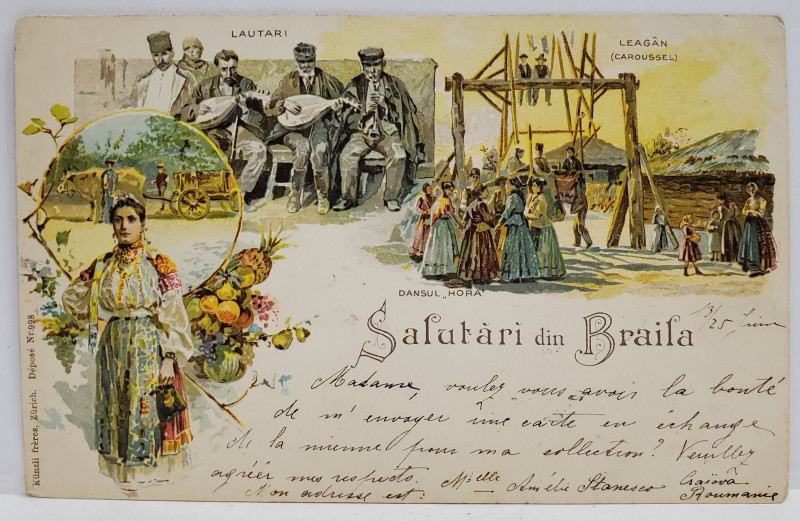 LAUTARI
LEAGĂN
(CAROUSSEL)
DANSUL „HORA"
Salutări din Braila
13/25 Juin
Madame, voulez vous avoir la bonté
de m'envoyer une carte en échange
de la mienne pour ma collection? Veuillez
agréer mes respects. Melle Amélie Stanesco Craïova
Mon adresse est: Roumanie
Künzli frères, Zürich. Déposé Nr. 998